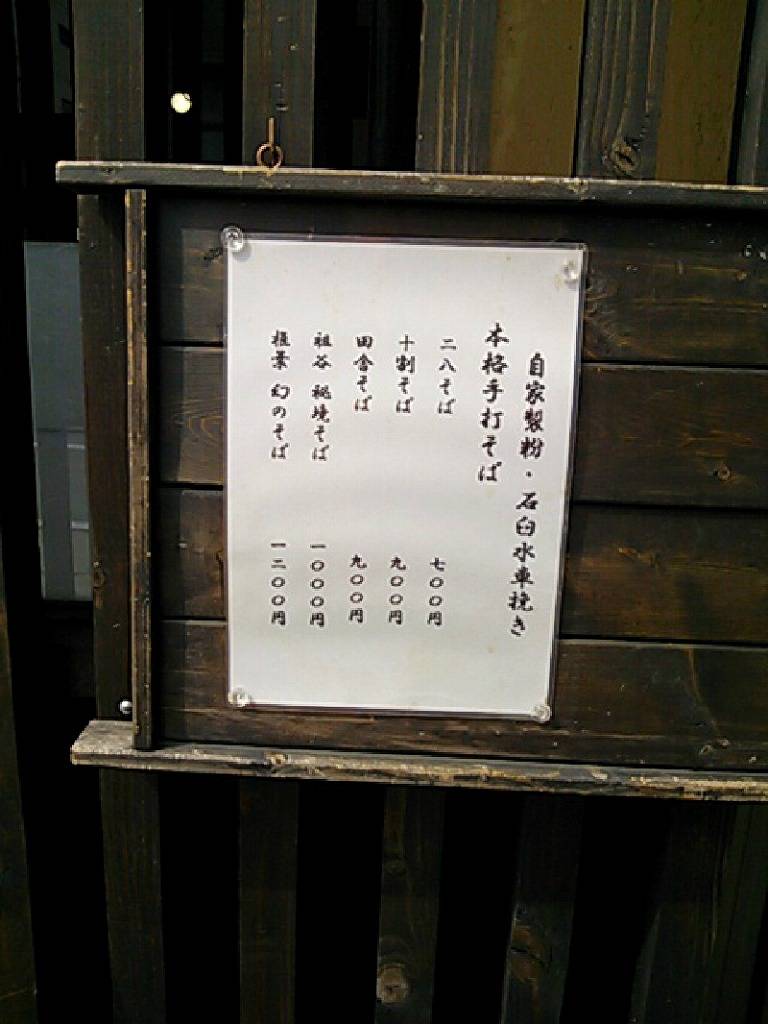 自家製粉・石臼水車挽き
本格手打そば
二八そば 七〇〇円
十割そば 九〇〇円
田舎そば 九〇〇円
祖谷 秘境そば 一〇〇〇円
椎葉 幻のそば 一二〇〇円